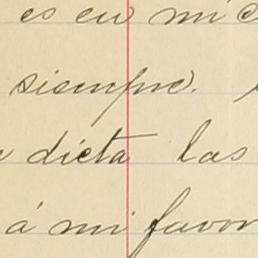 es en mi
siempre.
dicta las
á mi favor